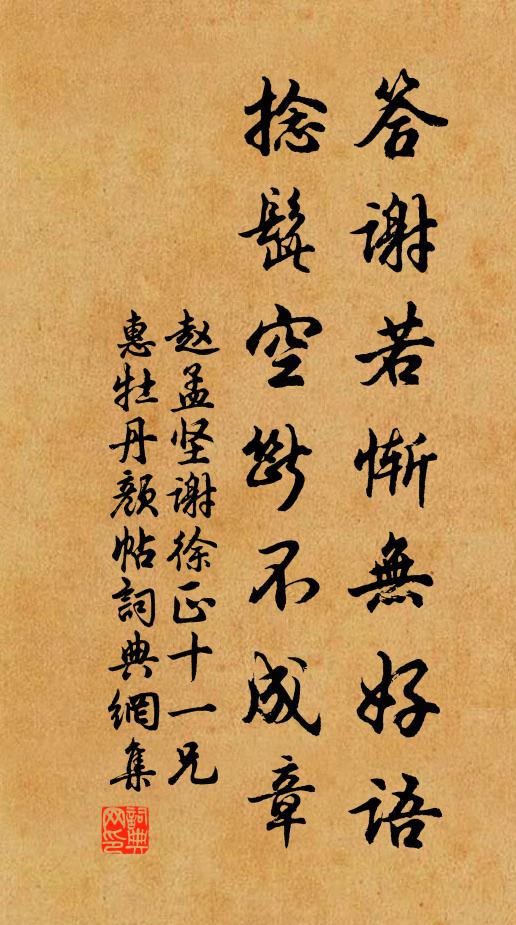 答谢若慚無好语
捻髭空斷不成章
赵孟坚谢徐正十一兄
惠牡丹颜帖詞典網集
詞典网印